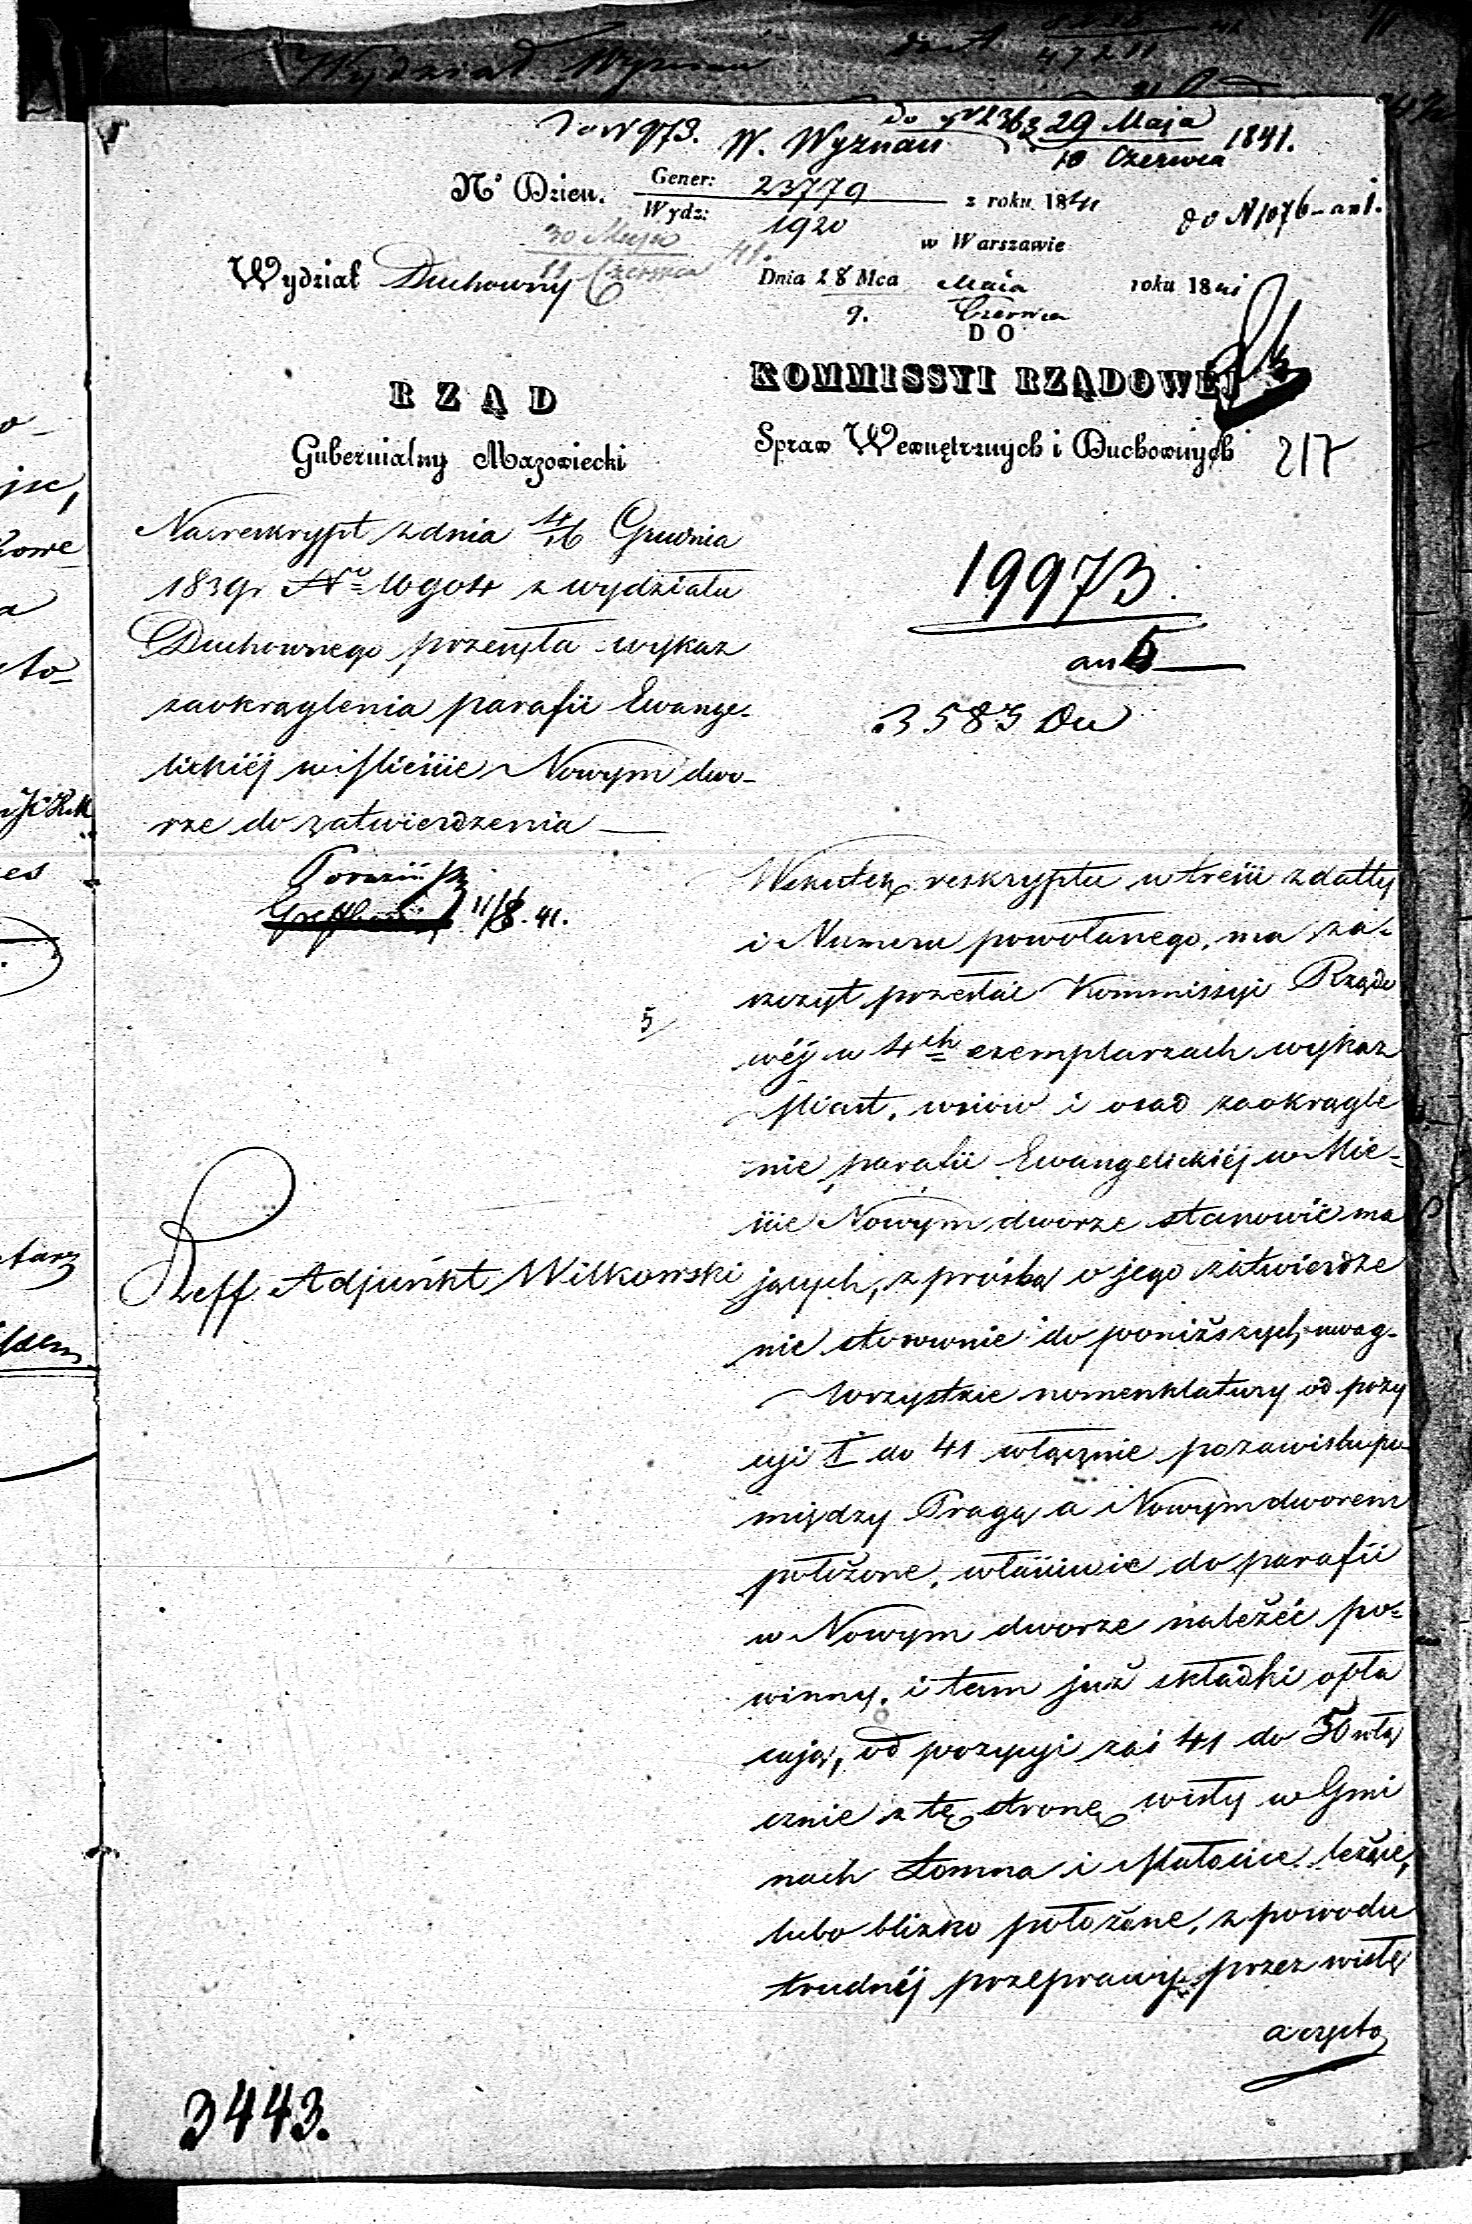 Wydział Wyznań
W. Wyznań
29 Maja
10 Czerwca
1841.
N° Dzien. Gener: 23779
Wydz: 1920
z roku 1841
do N 1076 - ant.
30 Maja
11 Czerwca 41.
w Warszawie
Wydział Duchowny
Dnia 28 Mca Maia roku 1841
9. Czerwca
DO
RZĄD
Gubernialny Mazowiecki
KOMMISSYI RZĄDOWEJ
Spraw Wewnętrznych i Duchownych
217
Na reskrypt z dnia 4/16 Grudnia
1839r N° 10904 z wydziału
Duchownego przesyła wykaz
zaokrąglenia parafii Ewange-
lickiéj w Mieście Nowym dwo-
rze do zatwierdzenia
19973.
ant
3583 Du
11/8. 41.
5
Reff Adjunkt Wilkowski
Wskutek reskryptu w treści z datty
i Numeru powołanego, ma za-
szczyt przesłać Kommissyi Rządo
wéj w 4ch exemplarzach wykaz
Miast, wsiów i osad zaokrągle
nie parafii Ewangelickiéj w Mie-
ście Nowym dworze stanowić ma
jących, z prośbą o jego zatwierdze
nie stosownie do poniższych uwag-
Wszystkie nomenklatury od pozy
cyi 1 do 41 włącznie poza wisłą po
między Pragą a Nowym dworem
położone, właściwie do parafii
w Nowym dworze należéć po-
winny, i tam już składki opła
cają, od pozycyi zaś 41 do 50 włą
cznie z tę stronę wisły w Gmi
nach Łomna i Małocice leżące,
lubo blizko położone, z powodu
trudnéj przeprawy przez wisłę
a często
3443.